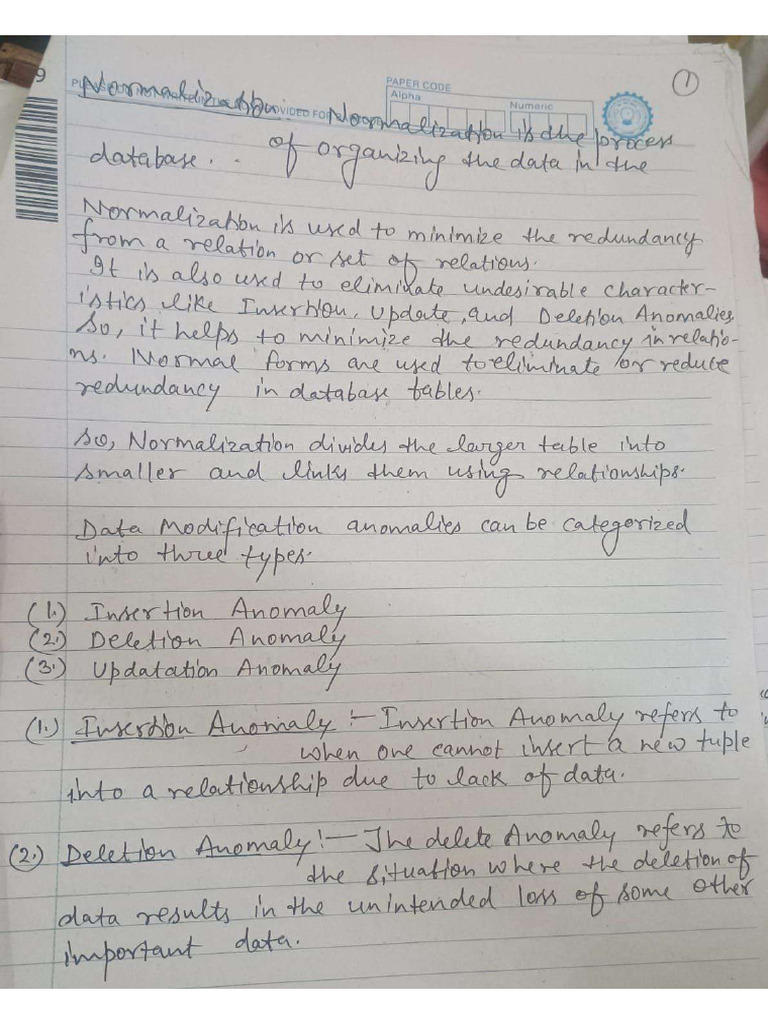 9
1
PAPER CODE
Alpha
Numeric
Normalization Normalization is the process
VIDED FOR
database... of organizing the data in the
Normalization is used to minimize the redundancy
from a relation or set of relations.
It is also used to eliminate undesirable character-
istics like Insertion, Update, and Deletion Anomalies
So, it helps to minimize the redundancy in relatio-
ns. Normal forms are used to eliminate or reduce
redundancy in database tables.
So, Normalization divides the larger table into
smaller and links them using relationships.
Data Modification anomalies can be categorized
into three types.
(1.) Insertion Anomaly
(2.) Deletion Anomaly
(3.) Updatation Anomaly
(1.) Insertion Anomaly :- Insertion Anomaly refers to
when one cannot insert a new tuple
into a relationship due to lack of data.
(2.) Deletion Anomaly :- The delete Anomaly refers to
the situation where the deletion of
data results in the unintended loss of some other
important data.